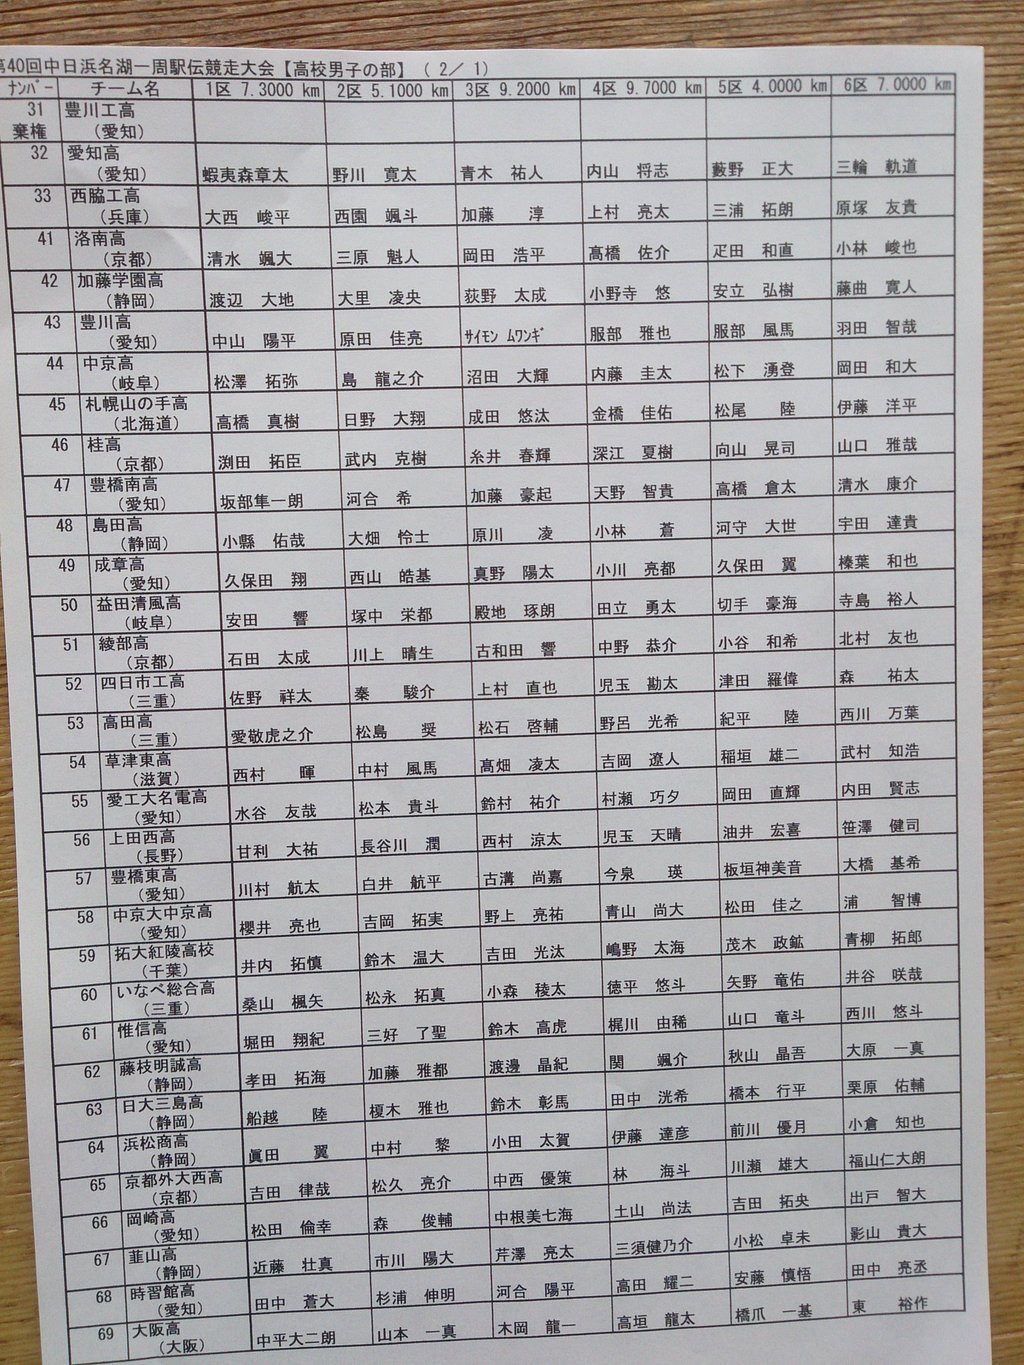 第40回中日浜名湖一周駅伝競走大会【高校男子の部】 ( 2/ 1)
ﾅﾝﾊﾞｰ チーム名 1区 7.3000 km 2区 5.1000 km 3区 9.2000 km 4区 9.7000 km 5区 4.0000 km 6区 7.0000 km
31 豊川工高
棄権 (愛知)
32 愛知高
(愛知) 蝦夷森章太 野川 寛太 青木 祐人 内山 将志 藪野 正大 三輪 軌道
33 西脇工高
(兵庫) 大西 峻平 西園 颯斗 加藤 淳 上村 亮太 三浦 拓朗 原塚 友貴
41 洛南高
(京都) 清水 颯大 三原 魁人 岡田 浩平 高橋 佐介 疋田 和直 小林 峻也
42 加藤学園高
(静岡) 渡辺 大地 大里 凌央 荻野 太成 小野寺 悠 安立 弘樹 藤曲 寛人
43 豊川高
(愛知) 中山 陽平 原田 佳亮 ｻｲﾓﾝ ﾑﾜﾝｷﾞ 服部 雅也 服部 風馬 羽田 智哉
44 中京高
(岐阜) 松澤 拓弥 島 龍之介 沼田 大輝 内藤 圭太 松下 湧登 岡田 和大
45 札幌山の手高
(北海道) 高橋 真樹 日野 大翔 成田 悠汰 金橋 佳佑 松尾 陸 伊藤 洋平
46 桂高
(京都) 渕田 拓臣 武内 克樹 糸井 春輝 深江 夏樹 向山 晃司 山口 雅哉
47 豊橋南高
(愛知) 坂部隼一朗 河合 希 加藤 豪起 天野 智貴 高橋 倉太 清水 康介
48 島田高
(静岡) 小縣 佑哉 大畑 怜士 原川 凌 小林 蒼 河守 大世 宇田 達貴
49 成章高
(愛知) 久保田 翔 西山 皓基 真野 陽太 小川 亮都 久保田 翼 榛葉 和也
50 益田清風高
(岐阜) 安田 響 塚中 栄都 殿地 琢朗 田立 勇太 切手 豪海 寺島 裕人
51 綾部高
(京都) 石田 太成 川上 晴生 古和田 響 中野 恭介 小谷 和希 北村 友也
52 四日市工高
(三重) 佐野 祥太 秦 駿介 上村 直也 児玉 勘太 津田 羅偉 森 祐太
53 高田高
(三重) 愛敬虎之介 松島 奨 松石 啓輔 野呂 光希 紀平 陸 西川 万葉
54 草津東高
(滋賀) 西村 暉 中村 風馬 髙畑 凌太 吉岡 遼人 稲垣 雄二 武村 知浩
55 愛工大名電高
(愛知) 水谷 友哉 松本 貴斗 鈴村 祐介 村瀬 巧夕 岡田 直輝 内田 賢志
56 上田西高
(長野) 甘利 大祐 長谷川 潤 西村 涼太 児玉 天晴 油井 宏喜 笹澤 健司
57 豊橋東高
(愛知) 川村 航太 白井 航平 古溝 尚嘉 今泉 瑛 板垣神美音 大橋 基希
58 中京大中京高
(愛知) 櫻井 亮也 吉岡 拓実 野上 亮祐 青山 尚大 松田 佳之 浦 智博
59 拓大紅陵高校
(千葉) 井内 拓慎 鈴木 温大 吉田 光汰 嶋野 太海 茂木 政鉱 青柳 拓郎
60 いなべ総合高
(三重) 桑山 楓矢 松永 拓真 小森 稜太 徳平 悠斗 矢野 竜佑 井谷 咲哉
61 惟信高
(愛知) 堀田 翔紀 三好 了聖 鈴木 高虎 梶川 由稀 山口 竜斗 西川 悠斗
62 藤枝明誠高
(静岡) 孝田 拓海 加藤 雅都 渡邊 晶紀 関 颯介 秋山 晶吾 大原 一真
63 日大三島高
(静岡) 船越 陸 榎木 雅也 鈴木 彰馬 田中 洸希 橋本 行平 栗原 佑輔
64 浜松商高
(静岡) 眞田 翼 中村 黎 小田 太賀 伊藤 達彦 前川 優月 小倉 知也
65 京都外大西高
(京都) 吉田 律哉 松久 亮介 中西 優策 林 海斗 川瀬 雄大 福山仁大朗
66 岡崎高
(愛知) 松田 倫幸 森 俊輔 中根美七海 土山 尚法 吉田 拓央 出戸 智大
67 韮山高
(静岡) 近藤 壮真 市川 陽大 芹澤 亮太 三須健乃介 小松 卓未 影山 貴大
68 時習館高
(愛知) 田中 蒼大 杉浦 伸明 河合 陽平 高田 耀二 安藤 慎悟 田中 亮丞
69 大阪高
(大阪) 中平大二朗 山本 一真 木岡 龍一 高垣 龍太 橋爪 一基 東 裕作